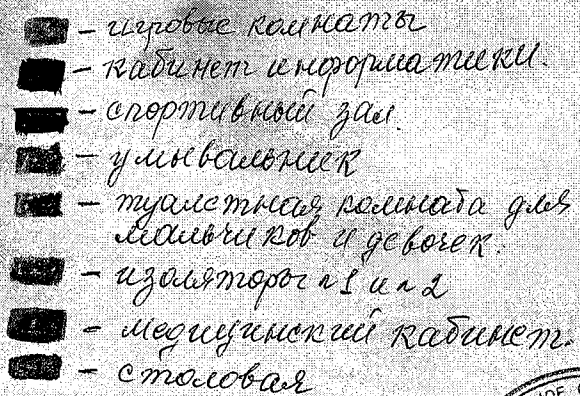 - игровые комнаты
- кабинет информатики.
- спортивный зал.
- умывальник
- туалетная комната для
мальчиков и девочек.
- изоляторы №1 и №2
- медицинский кабинет.
- столовая